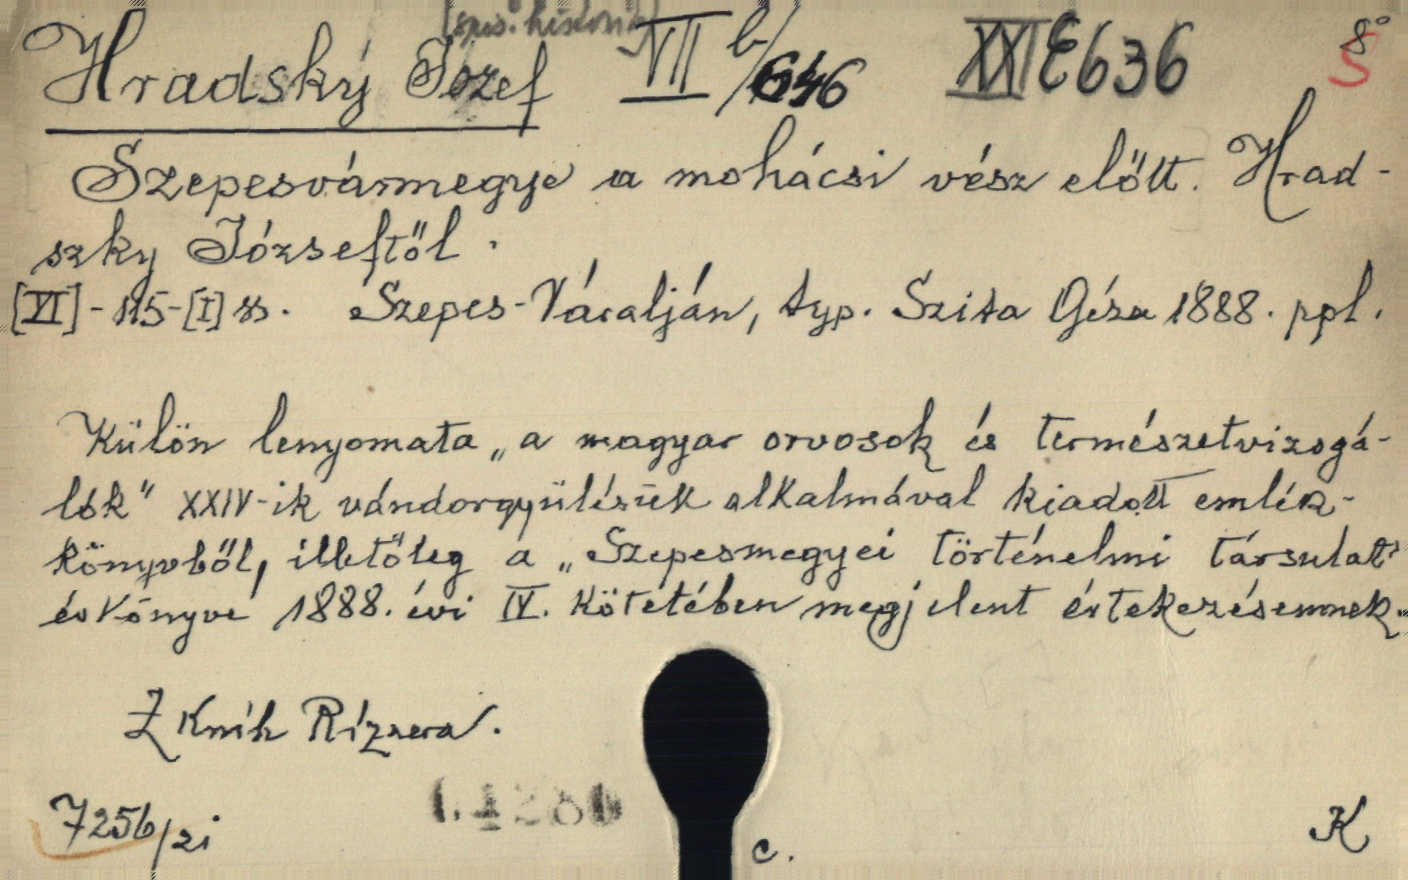 Hradský Jozef VII b/646 XX E636 8°
S
Szepesvármegye a mohácsi vész előtt. Hrad-
szky Józseftől.
[VI]-115-[I] s. Szepes-Váralján, typ. Szita Géza 1888. ppl.
Külön lenyomata „a magyar orvosok és természetvizsgá-
lók" XXIV-ik vándorgyülésük alkalmával kiadott emlék-
könyvből, illetőleg a „Szepesmegyei történelmi társulat"
évkönyve 1888. évi IV. kötétében megjelent értekezésemnek.
Z kníh Ríznera.
7256/zi
c.
K